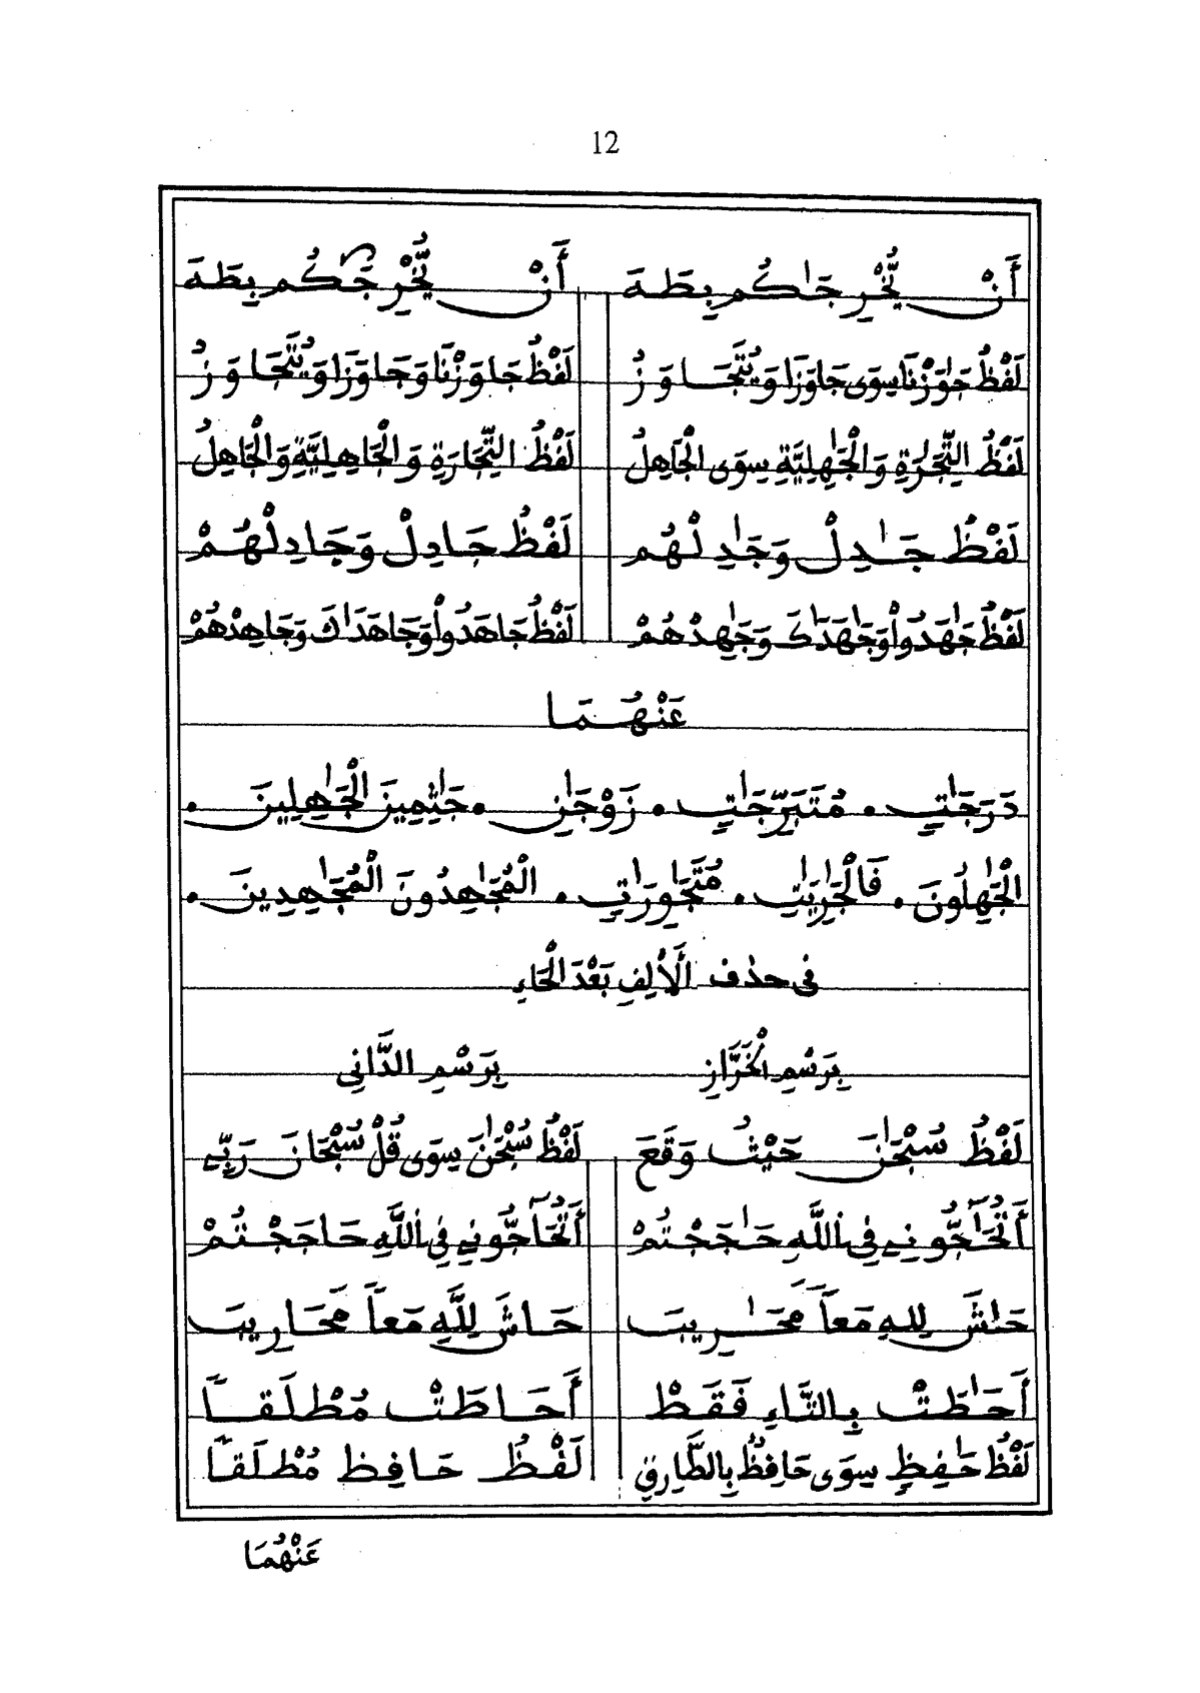 12
أَنْ يُّخْرِجَٰكُم بِطَهَ أَنْ يُّخْرِجَٰكُم بِطَهَ
لَفْظُ جَٰوَزْنَا سِوَى جَاوَزَا وَيُتَّجَاوَزُ لَفْظُ جَاوَزْنَا وَجَاوَزَا وَيُتَّجَاوَزُ
لَفْظُ التِّجَٰرَةِ وَالْجَٰهِلِيَّةِ سِوَى الْجَاهِلُ لَفْظُ التِّجَارَةِ وَالْجَاهِلِيَّةِ وَالْجَاهِلُ
لَفْظُ جَٰدِلْ وَجَٰدِلْهُم لَفْظُ جَادِلْ وَجَادِلْهُمْ
لَفْظُ جَٰهَدُواْ وَجَٰهَدَٰكَ وَجَٰهِدْهُمْ لَفْظُ جَاهَدُواْ وَجَاهَدَاكَ وَجَاهِدْهُمْ
عَنْهُمَا
دَرَجَٰتٍ • مُتَبَرِّجَٰتٍ • زَوْجَٰنِ • جَٰثِمِينَ الْجَٰهِلِينَ •
الْجَٰهِلُونَ • فَالْجَٰرِيَٰتِ • مُتَجَٰوِرَٰتٍ • الْمُجَٰهِدُونَ الْمُجَٰهِدِينَ •
فِى حذف الَألِفِ بَعْدَ الْحَاءِ
بِرَسْمِ الْخَرَّازِ بِرَسْمِ الدَّانِى
لَفْظُ سُبْحَٰنَ حَيْثُ وَقَعَ لَفْظُ سُبْحَٰنَ سِوَى قُلْ سُبْحَانَ رَبِّے
أَتُحَٰٓجُّونِے فِى اللَّهِ حَٰجَجْتُمْ أَتُحَآجُّونِے فِى اللَّهِ حَاجَجْتُمْ
حَٰشَ لِلهِ مَعاً مَّحَٰرِيبَ حَاشَ لِلَّهِ مَعاً مَّحَارِيبَ
أَحَٰطَتْ بِالتَّاءِ فَقَطْ أَحَاطَتْ مُطْلَقاً
لَفْظُ حَٰفِظٍ سِوَى حَافِظٌ بِالطَّارِقِ لَفْظُ حَافِظ مُطْلَقاً
عَنْهُمَا